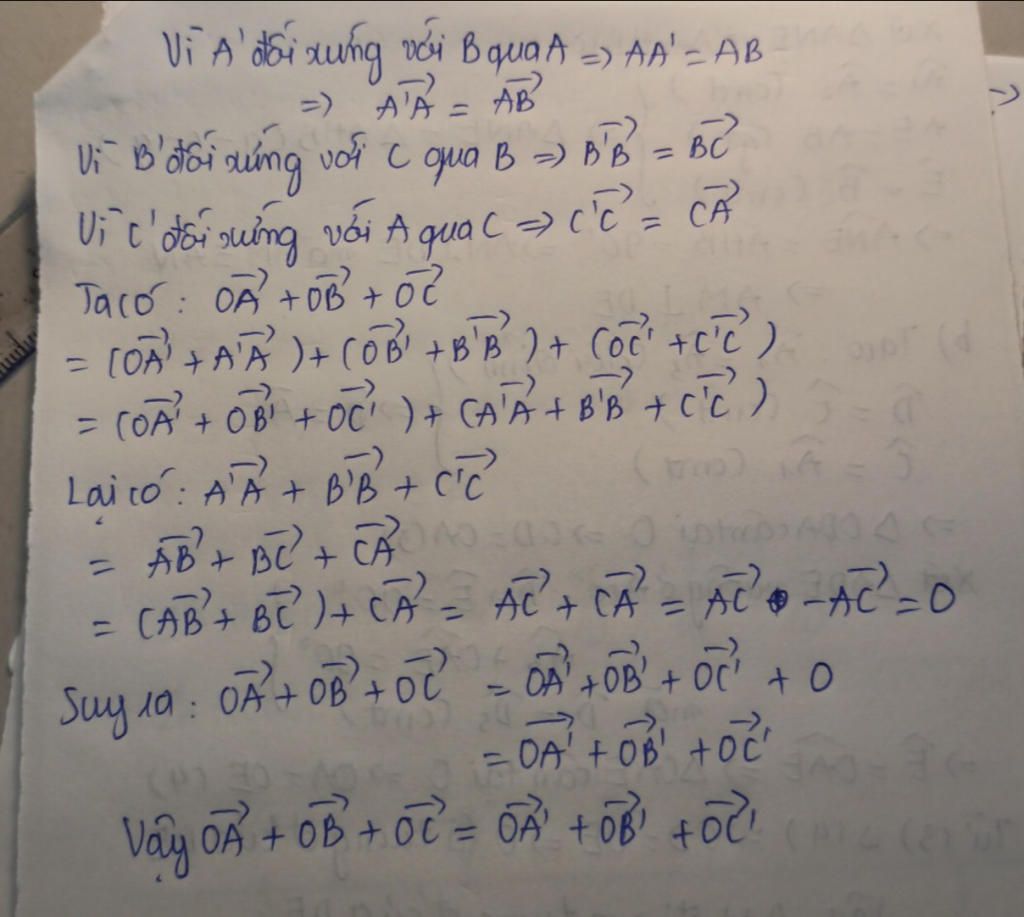 Vì A' đối xứng với B qua A => AA' = AB
=> A'A = AB
Vì B' đối xứng với C qua B => B'B = BC
Vì C' đối xứng với A qua C => C'C = CA
Ta có : OA + OB + OC
= (OA' + A'A) + (OB' + B'B) + (OC' + C'C)
= (OA' + OB' + OC') + (A'A + B'B + C'C)
Lại có : A'A + B'B + C'C
= AB + BC + CA
= (AB + BC) + CA = AC + CA = AC - AC = 0
Suy ra : OA + OB + OC = OA' + OB' + OC' + 0
= OA' + OB' + OC'
Vậy OA + OB + OC = OA' + OB' + OC'